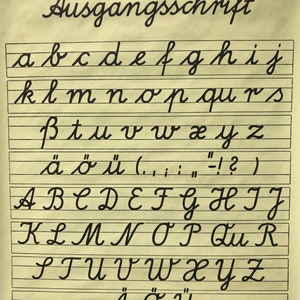 Ausgangsschrift
a b c d e f g h i j
k l m n o p qu r s
ß t u v w x y z
ä ö ü (. , ; : „ “ - ! ? )
A B C D E F G H I J
K L M N O P Qu R
S T U V W X Y Z
Ä Ö Ü